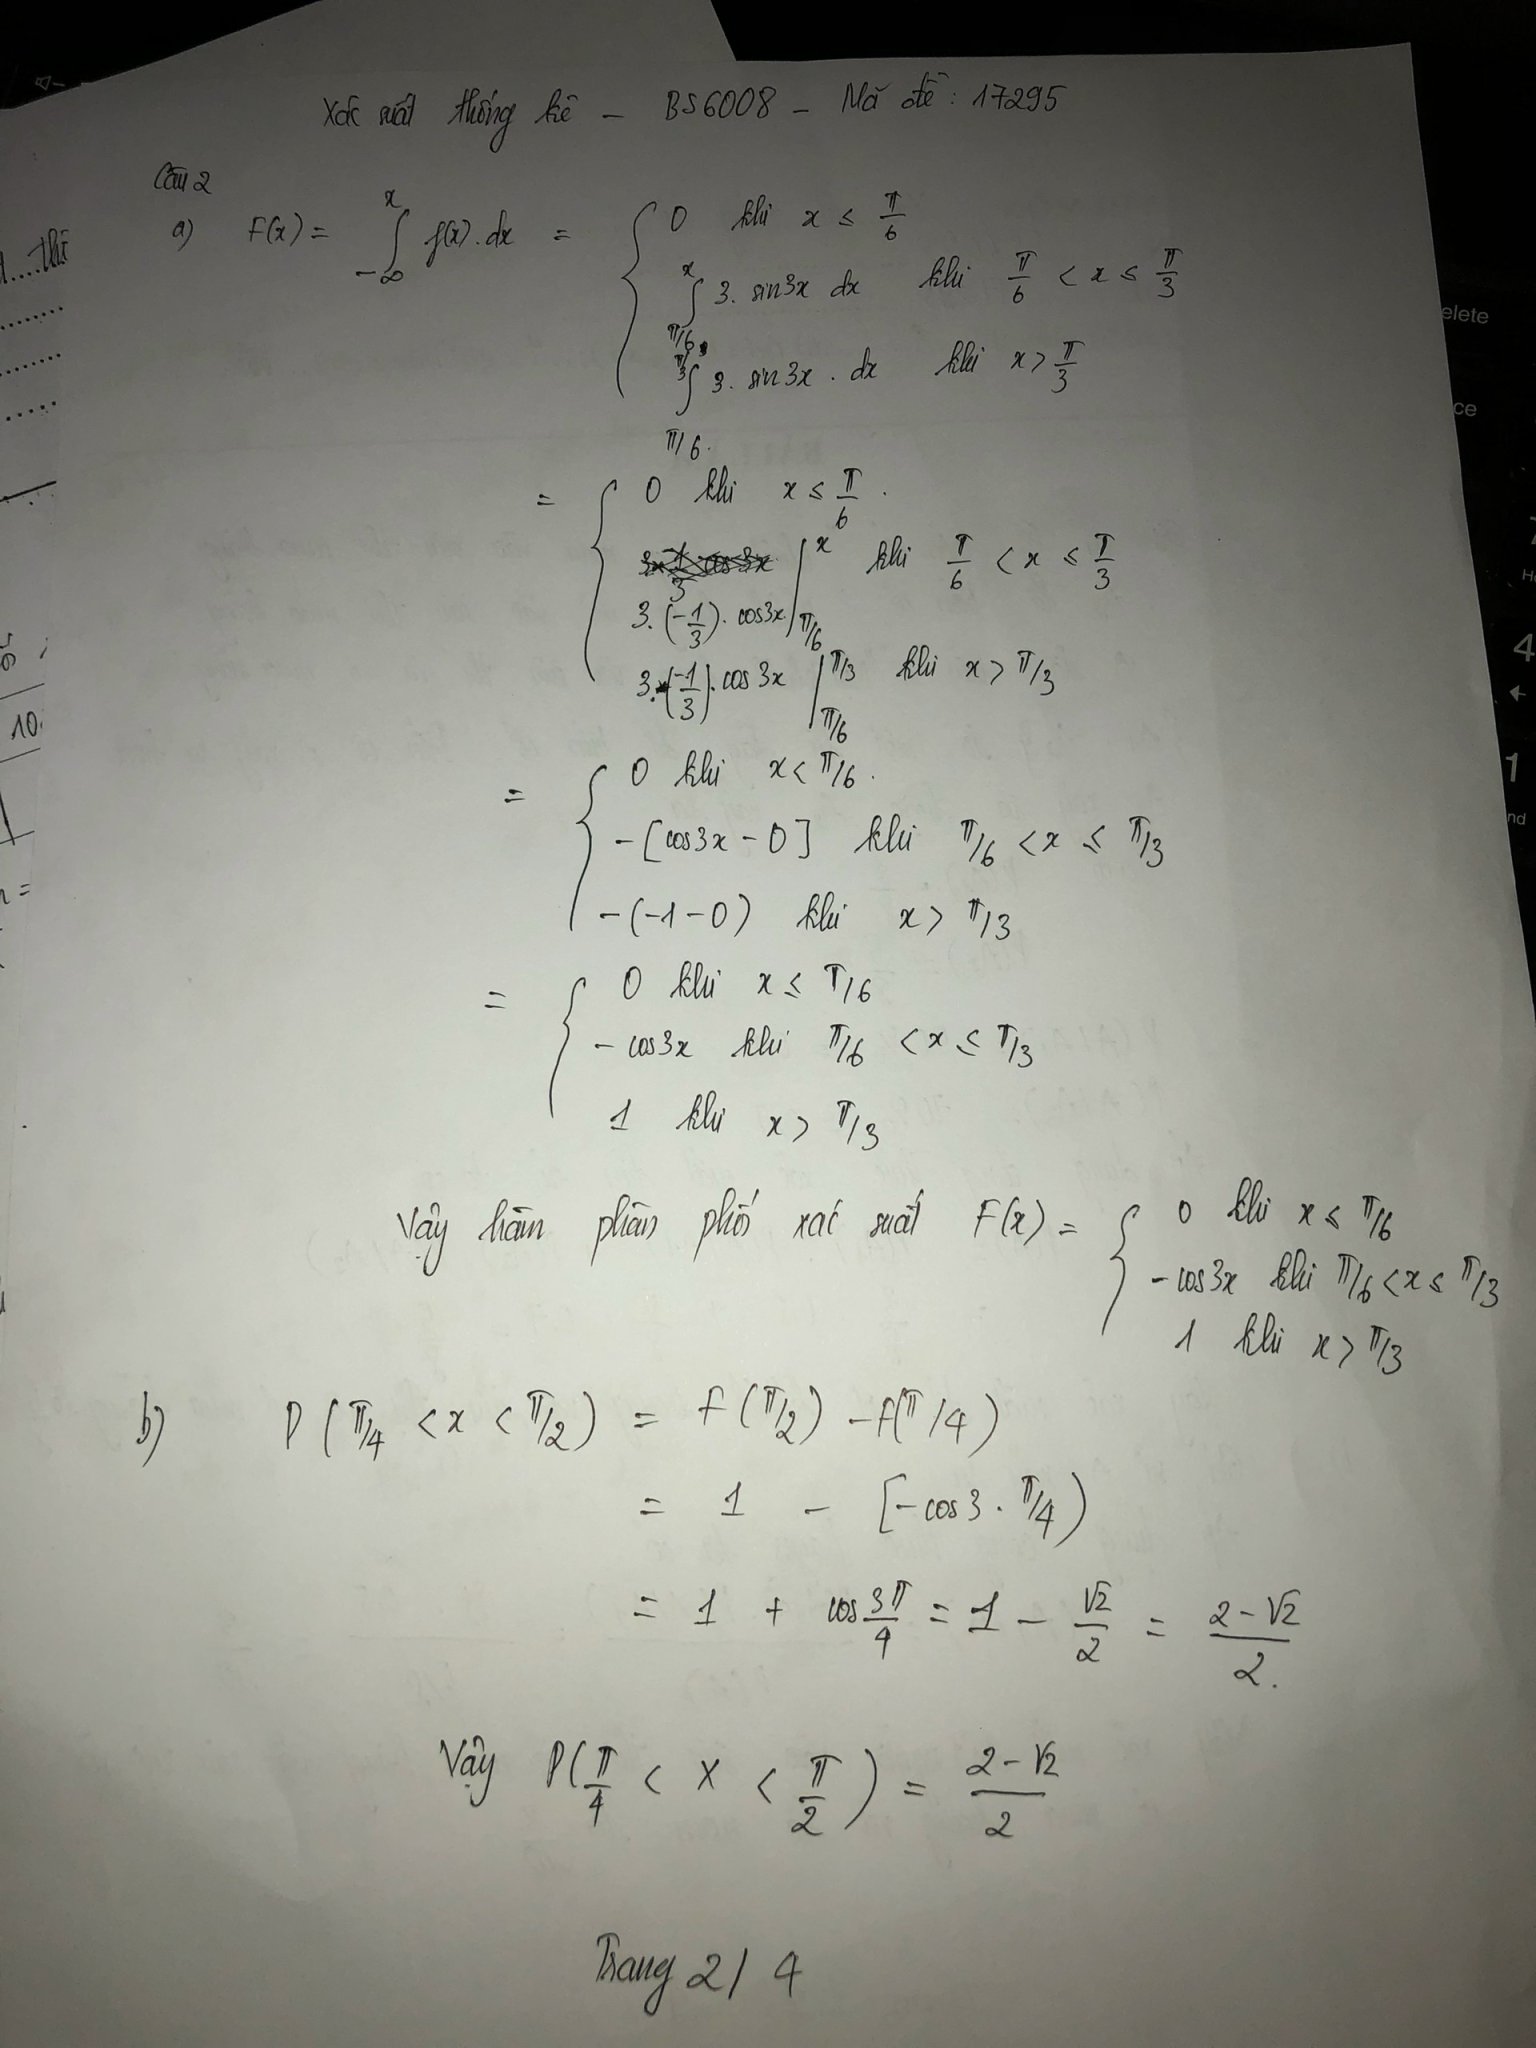 Xác suất thống kê - BS6008 - Mã đề: 17295
Câu 2
a) F(x) = ∫_{-∞}^{x} f(x).dx = { 0 khi x ≤ π/6
∫_{π/6}^{x} 3. sin3x dx khi π/6 < x ≤ π/3
∫_{π/6}^{π/3} 3. sin3x . dx khi x > π/3
= { 0 khi x ≤ π/6 .
3.(-1/3). cos3x |_{π/6}^{x} khi π/6 < x ≤ π/3
3.(-1/3). cos 3x |_{π/6}^{π/3} khi x > π/3
= { 0 khi x < π/6 .
-[cos3x - 0] khi π/6 < x ≤ π/3
-(-1-0) khi x > π/3
= { 0 khi x ≤ π/6
- cos3x khi π/6 < x ≤ π/3
1 khi x > π/3
Vậy hàm phân phối xác suất F(x) = { 0 khi x ≤ π/6
- cos3x khi π/6 < x ≤ π/3
1 khi x > π/3
b) P(π/4 < x < π/2) = F(π/2) - F(π/4)
= 1 - [-cos3 . π/4)
= 1 + cos 3π/4 = 1 - √2/2 = (2-√2)/2.
Vậy P(π/4 < X < π/2) = (2-√2)/2
Trang 2/4
elete
4
1
nd
10